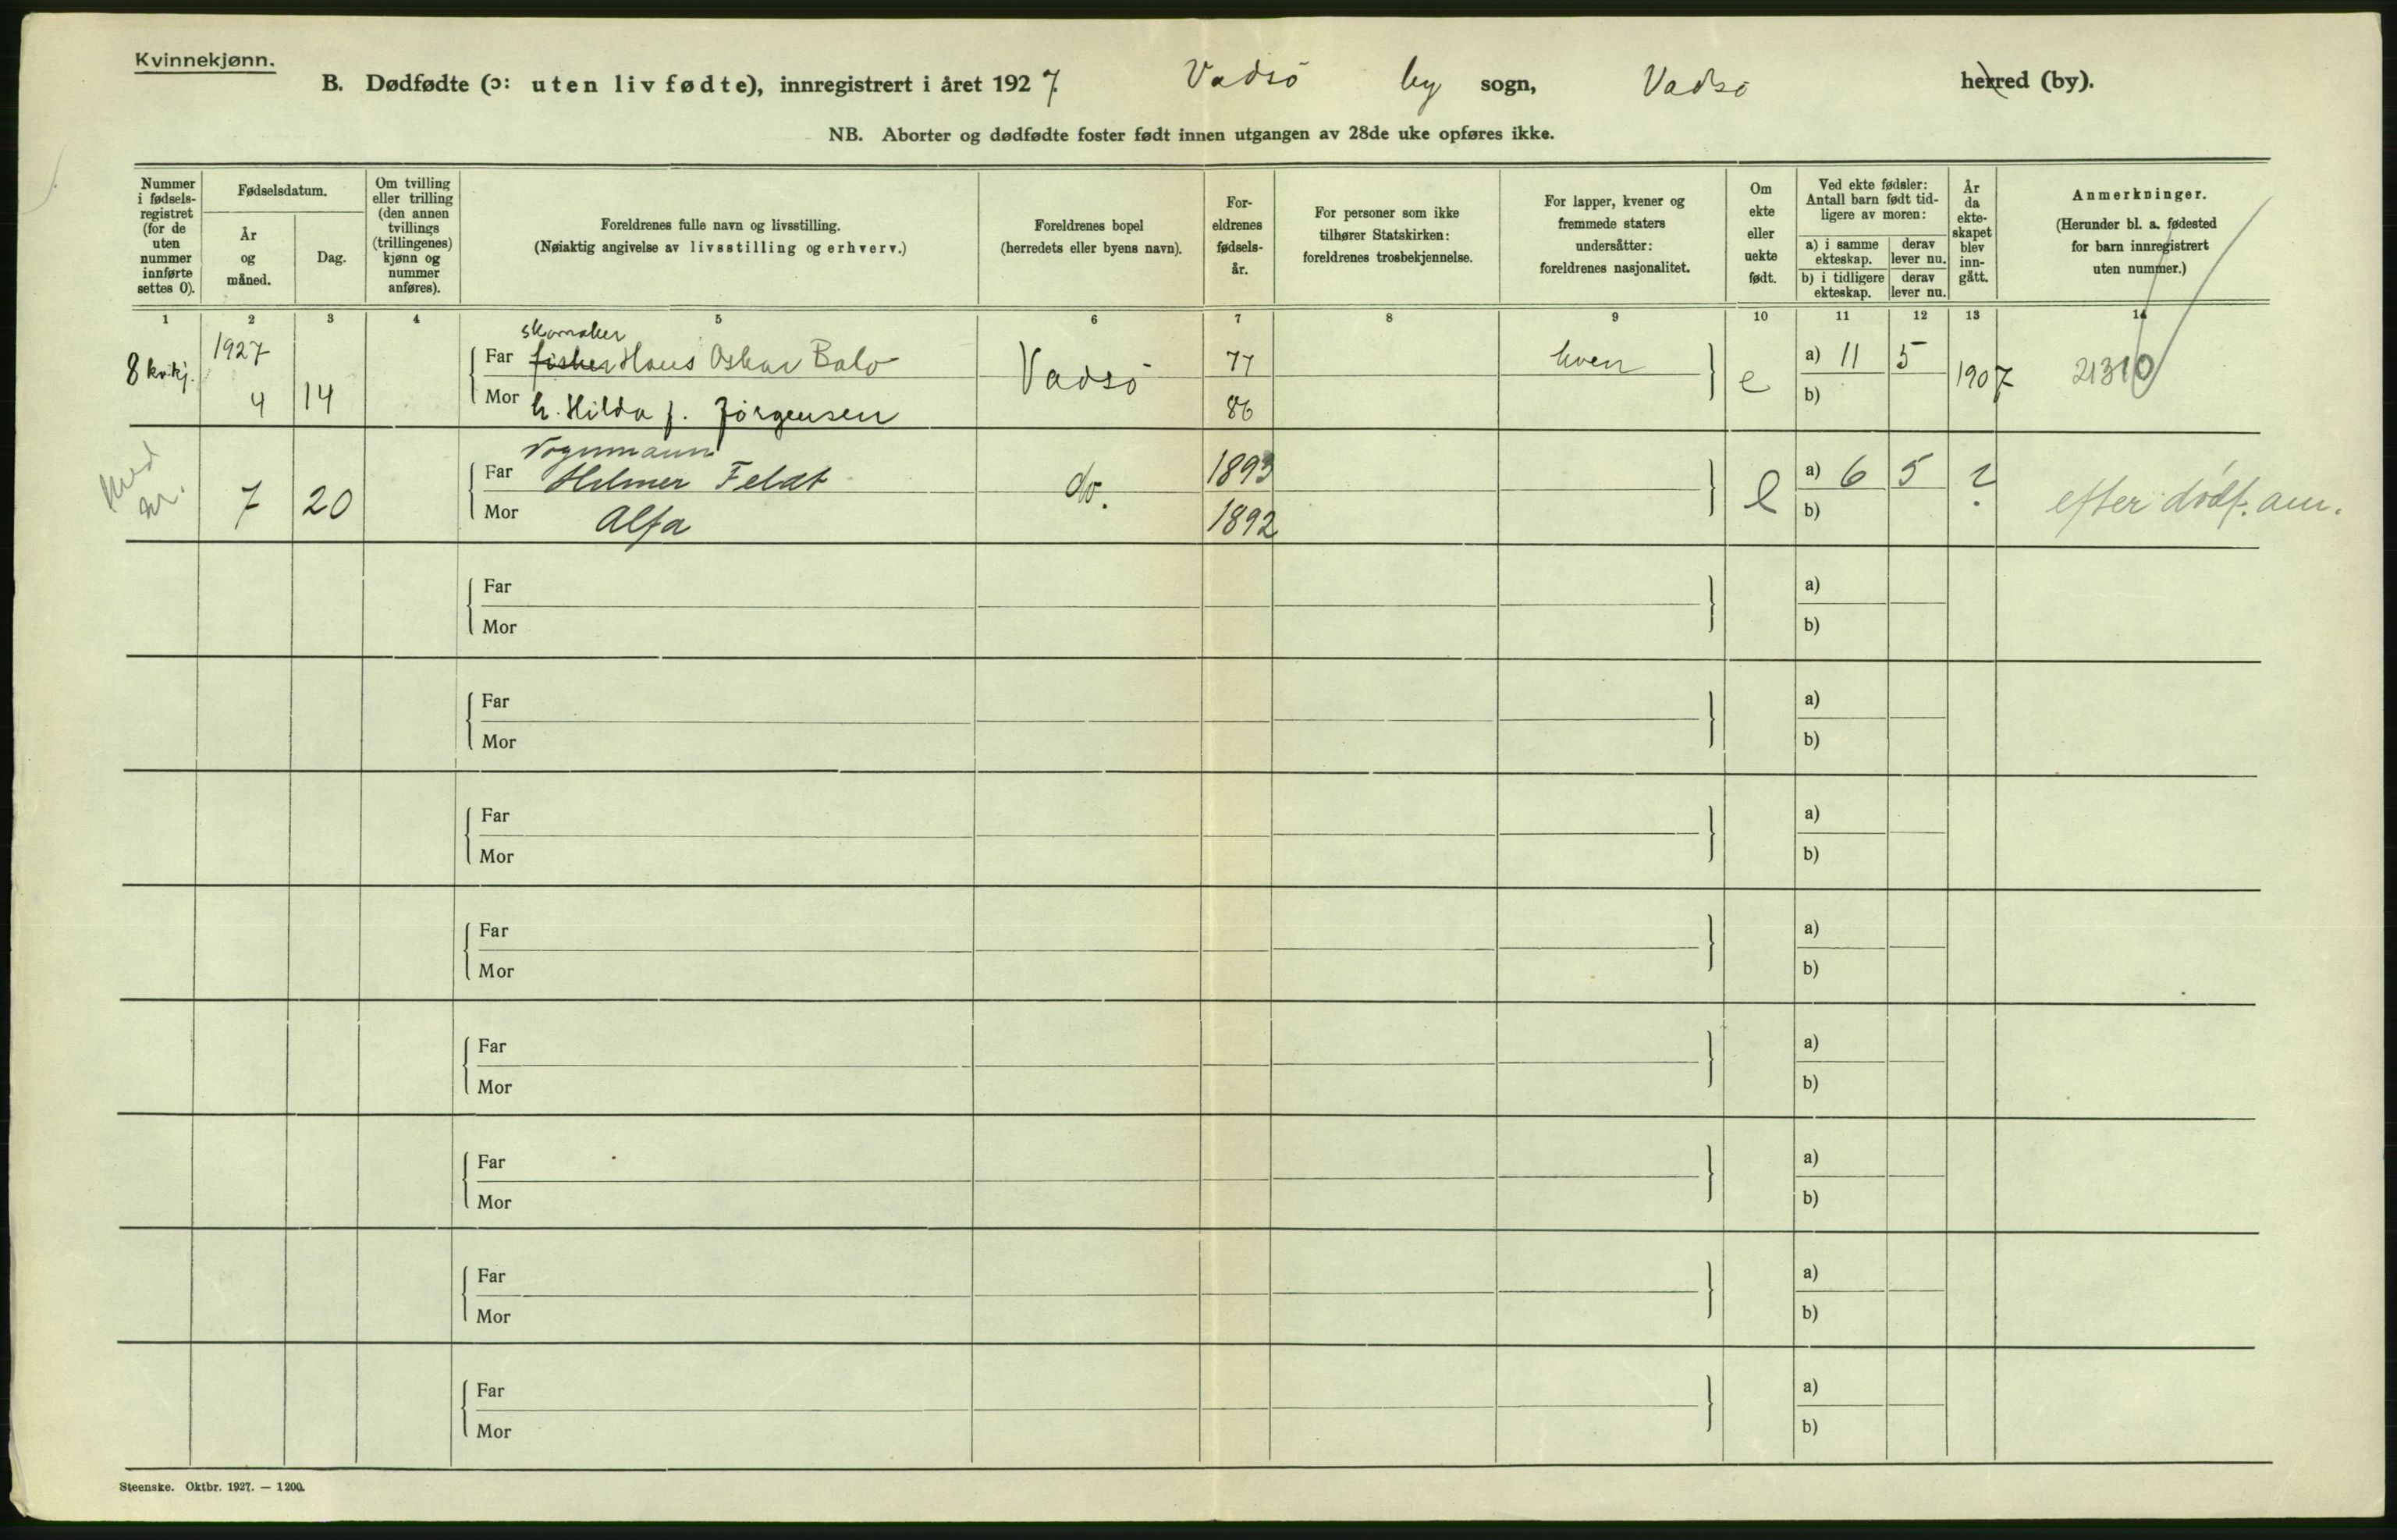 Kvinnekjønn.
B. Dødfødte (ɔ: uten liv fødte), innregistrert i året 1927. Vadsö by sogn, Vadsö herred (by).
NB. Aborter og dødfødte foster født innen utgangen av 28de uke opføres ikke.
Nummer i fødsels-registret (for de uten nummer innførte settes 0).
Fødselsdatum.
År og måned.
Dag.
Om tvilling eller trilling (den annen tvillings (trillingenes) kjønn og nummer anføres).
Foreldrenes fulle navn og livsstilling.
(Nøiaktig angivelse av livsstilling og erhverv.)
Foreldrenes bopel
(herredets eller byens navn).
For-eldrenes fødsels-år.
For personer som ikke tilhører Statskirken: foreldrenes trosbekjennelse.
For lapper, kvener og fremmede staters undersåtter: foreldrenes nasjonalitet.
Om ekte eller uekte født.
Ved ekte fødsler: Antall barn født tid-ligere av moren:
a) i samme ekteskap.
derav lever nu.
b) i tidligere ekteskap.
derav lever nu.
År da ekte-skapet blev inn-gått.
Anmerkninger.
(Herunder bl. a. fødested for barn innregistrert uten nummer.)
1 2 3 4 5 6 7 8 9 10 11 12 13 14
skomaker
8 kv.kj. 1927 4 14
Far fisker Hans Oskar Balo Vadsö 77 kven e a) 11 5 1907 21310
Mor h. Hilda f. Jörgensen 86 b)
Vognmann
med nr. 7 20
Far Hilmer Feldt do. 1893 e a) 6 5 ? efter dödf. am.
Mor Alfa 1892 b)
Far a)
Mor b)
Far a)
Mor b)
Far a)
Mor b)
Far a)
Mor b)
Far a)
Mor b)
Far a)
Mor b)
Far a)
Mor b)
Far a)
Mor b)
Steenske. Oktbr. 1927. — 1200.